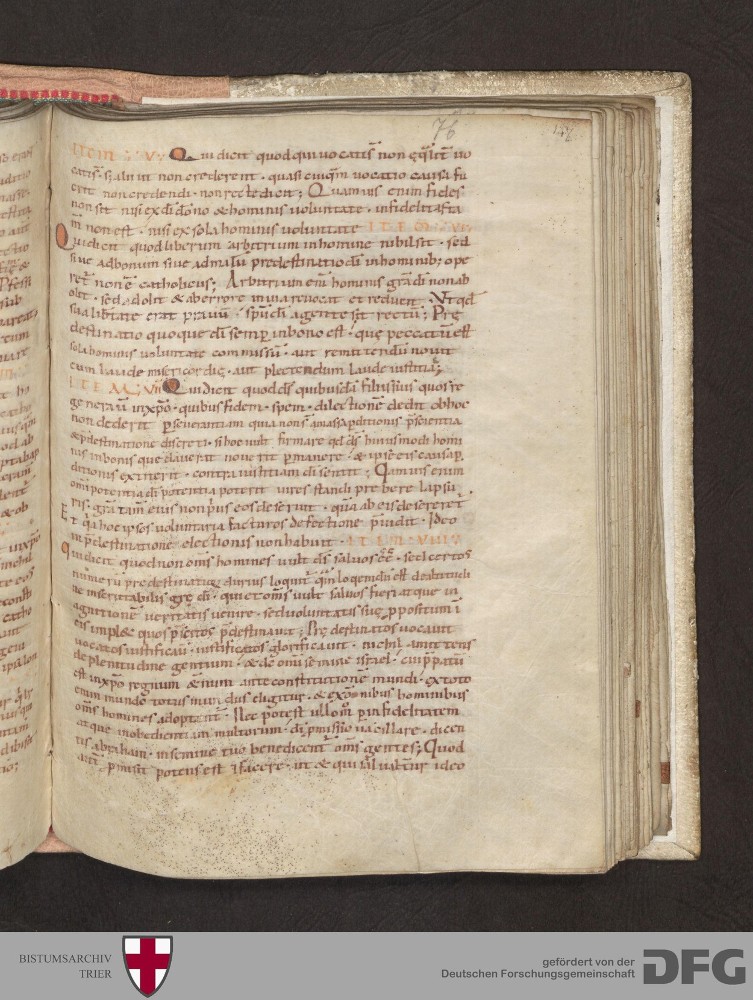 76
ITEM V Qui dicit quod qui uocatis non equalit uo
catis. si alii ut non crederent. quasi cuiqm uocatio causa fu
erit non credendi. non recte dicit; Quamuis enim fides
non sit nisi ex di dono & hominis uoluntate. infidelitas ta
m non est. nisi ex sola hominis uoluntate ITEM VI
Qui dicit quod liberum arbitrium in homine nihil sit. sed
siue ad bonum siue ad malu predestinatio di in hominib; ope
ret non e catholicus; Arbitrium em hominis gra di non ab
olit. sed adolit & ab errore in uia reuocat et reducit. Vt qd
sua libtate erat prauu. spu di agente sit rectu; Pre
destinatio quoque di semp in bono est. que peccatu est
sola hominis uoluntate commissu. aut remittendu nouit
cum laude misericordie. aut plectendum laude iustitie;
ITEM VII Qui dicit quod ds quibusda filiis suis quos re
generauit in xpo. quibus fidem. spem. dilectione dedit ob hoc
non dederit pseuerantiam quia non s a massa pditionis pscientia
& pdestinatione discreti. si hoc uult firmare qd ds huiusmodi homi
nis in bonis que
ditionis exierit. contra iustitiam di sentit; Quamuis enim
omipotentia di potentia poterit uires standi prebere lapsu
ris. gra tam eius non prius eos deserunt. qua ab eis desereret
Et qa hoc ipsos uoluntaria facturos defectione pruidit. Ideo
in pdestinatione electionis non habuit. ITEM VIII
Qui dicit quod non oms homines uult ds saluos ee. sed certos
numeru predestinatu durius loquit qm loquendu est de altitudi
ne inscrutabilis gre di. qui et oms uult saluos fieri atque in
agnitione ueritatis uenire. sed uoluntatis sue ppositum i
eis implet quos pscitos pdestinauit; Predestinatos uocauit
uocatos iustificauit. iustificatos glorificauit. nichil amittens
de plenitudine gentium. & de omi semine israel. cui pparatu
est in xpo regnum ante constitutione mundi. ex toto
enim mundo totus mundus eligitur. & ex omnibus hominibus
oms homines adoptant. Nec potest ullo m p infidelitatem
atque inobedientiam multorum. di pmissio uacillare. dicen
tis abraham. in semine tuo benedicent oms gentes; Quod
aut pmisit potens est & facere. ut & qui saluatur ideo
BISTUMSARCHIV
TRIER
gefördert von der
Deutschen Forschungsgemeinschaft
DFG